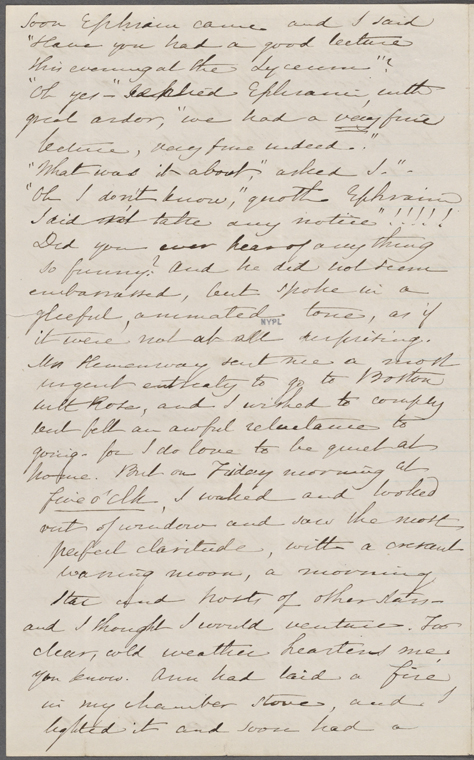 Soon Ephraim came and I said
"Have you had a good lecture
this evening at the Lyceum"?
"Oh yes—" replied Ephraim, with
great ardor, "we had a very fine
lecture, very fine indeed."
"What was it about," asked I.
"Oh I don't know," quoth Ephraim
I did not take any notice"!!!!!
Did you ever hear of anything
so funny? And he did not seem
embarrassed, but spoke in a
gleeful, animated tone, as if
NYPL
it were not at all surprising.
Mrs Hemenway sent me a most
urgent entreaty to go to Boston
with Rose, and I wished to comply
but felt an awful reluctance to
going— for I do love to be quiet at
home. But on Friday morning at
five o'clk, I waked and looked
out of window and saw the most
perfect claritude, with a cresant
waning moon, a morning
star and hosts of other stars—
and I thought I would venture. For
clear, cold weather heartens me,
you know. Ann had laid a fire
in my chamber stove, and I
lighted it and soon had a